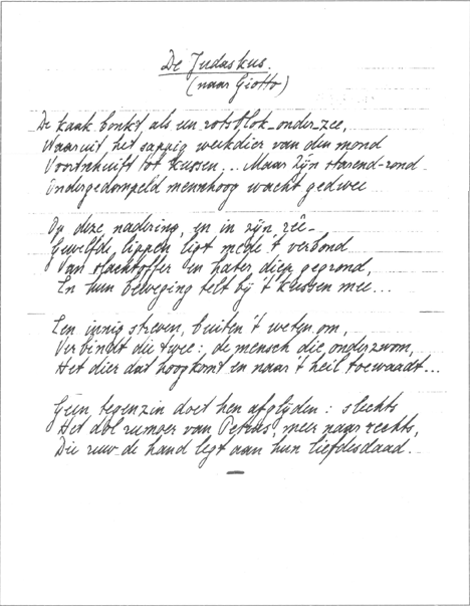 De Judaskus.
(naar Giotto)
De kaak bonkt als een rotsblok-onder-zee,
Waaruit het sappig weekdier van den mond
Voortschuift tot kussen... Maar zijn starend-rond
Ondergedompeld menschoog wacht gedwee
Op deze nadering, en in zijn
Gewelfde lippen ligt mede 't verbond
Van slachtoffer en hater, diep gegrond,
En hun beweging telt bij 't kussen mee...
Een innig streven, buiten 't weten om,
Verbindt die twee: de mensch die onderzwom,
Het dier dat hoog komt en naar 't heil toewaadt...
Geen tegenzin doet hen afglijden: slechts
Het dol rumoer van Petrus, meer naar rechts,
Die ruw de hand legt aan hun liefdesdaad.